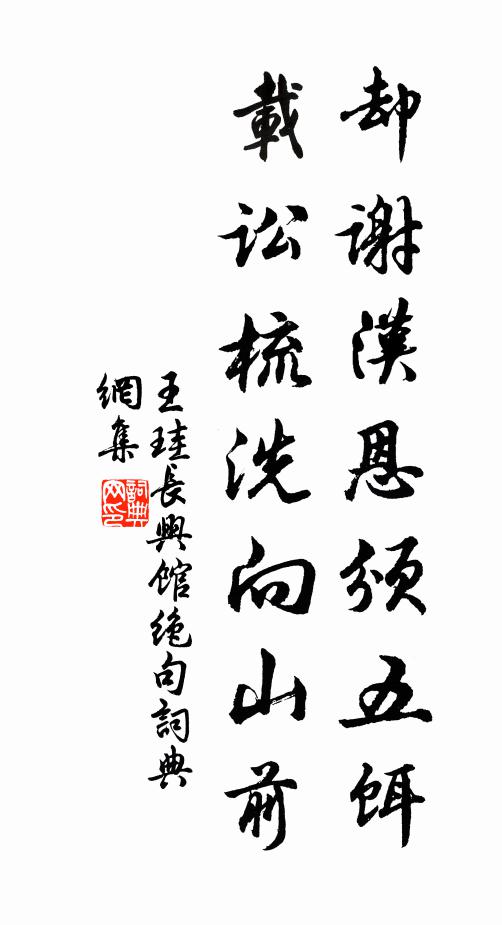 却谢漢恩頒五餌
載訟梳洗向山前
王珪長興馆绝句詞典
網集
詞典網印